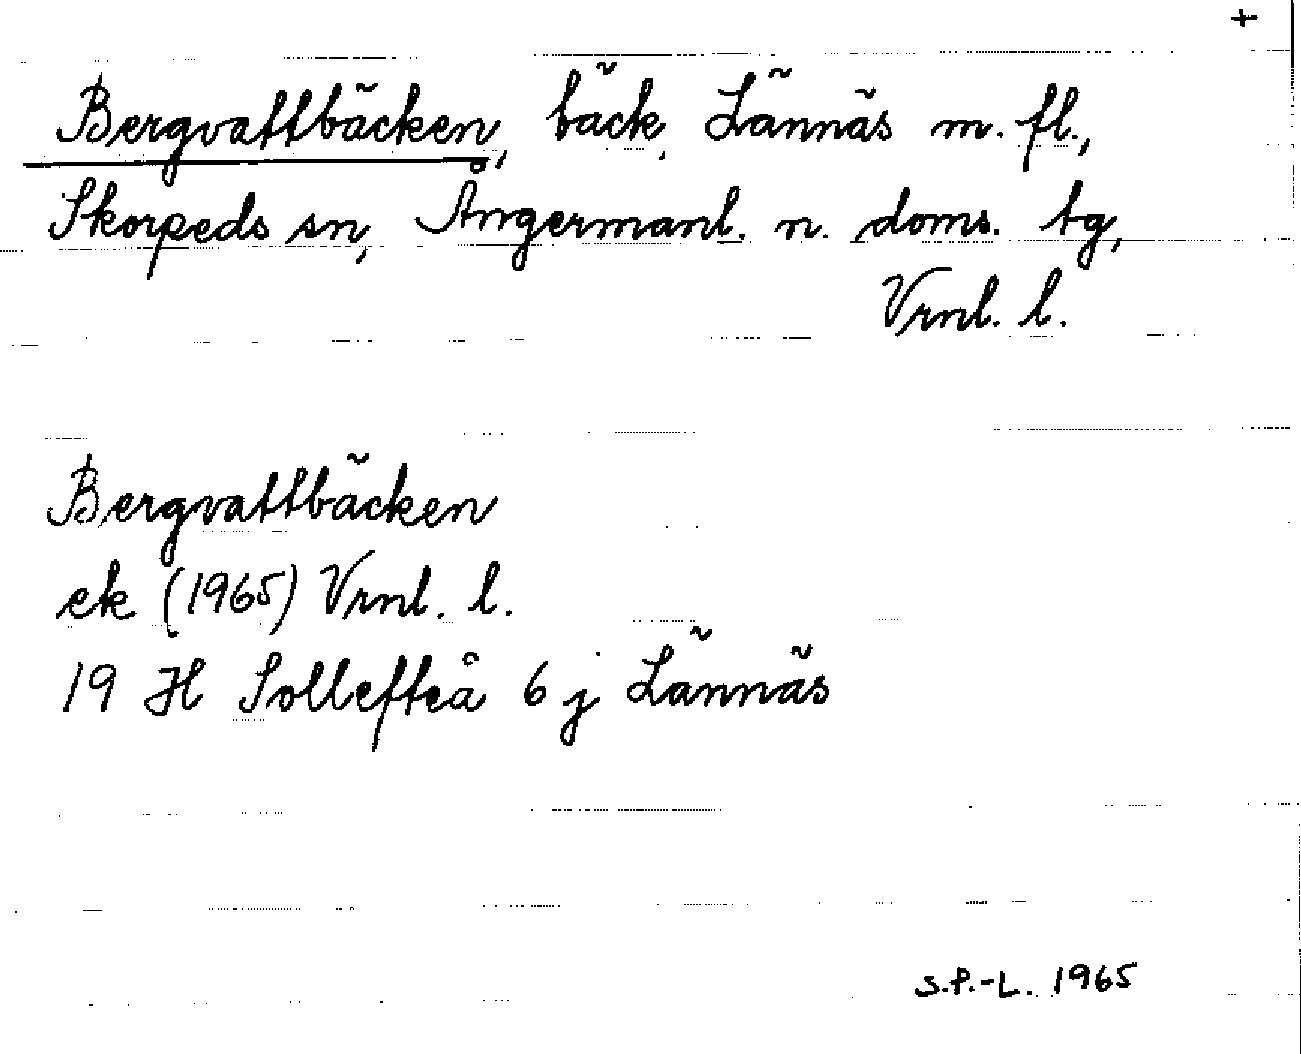 +
Bergvattbäcken, bäck, Lännäs m. fl.,
Skorpeds sn, Ångermanl. n. doms. tg,
Vrnl. l.
Bergvattbäcken
ek (1965) Vrnl. l.
19 H Sollefteå 6 j Lännäs
S.P.-L. 1965